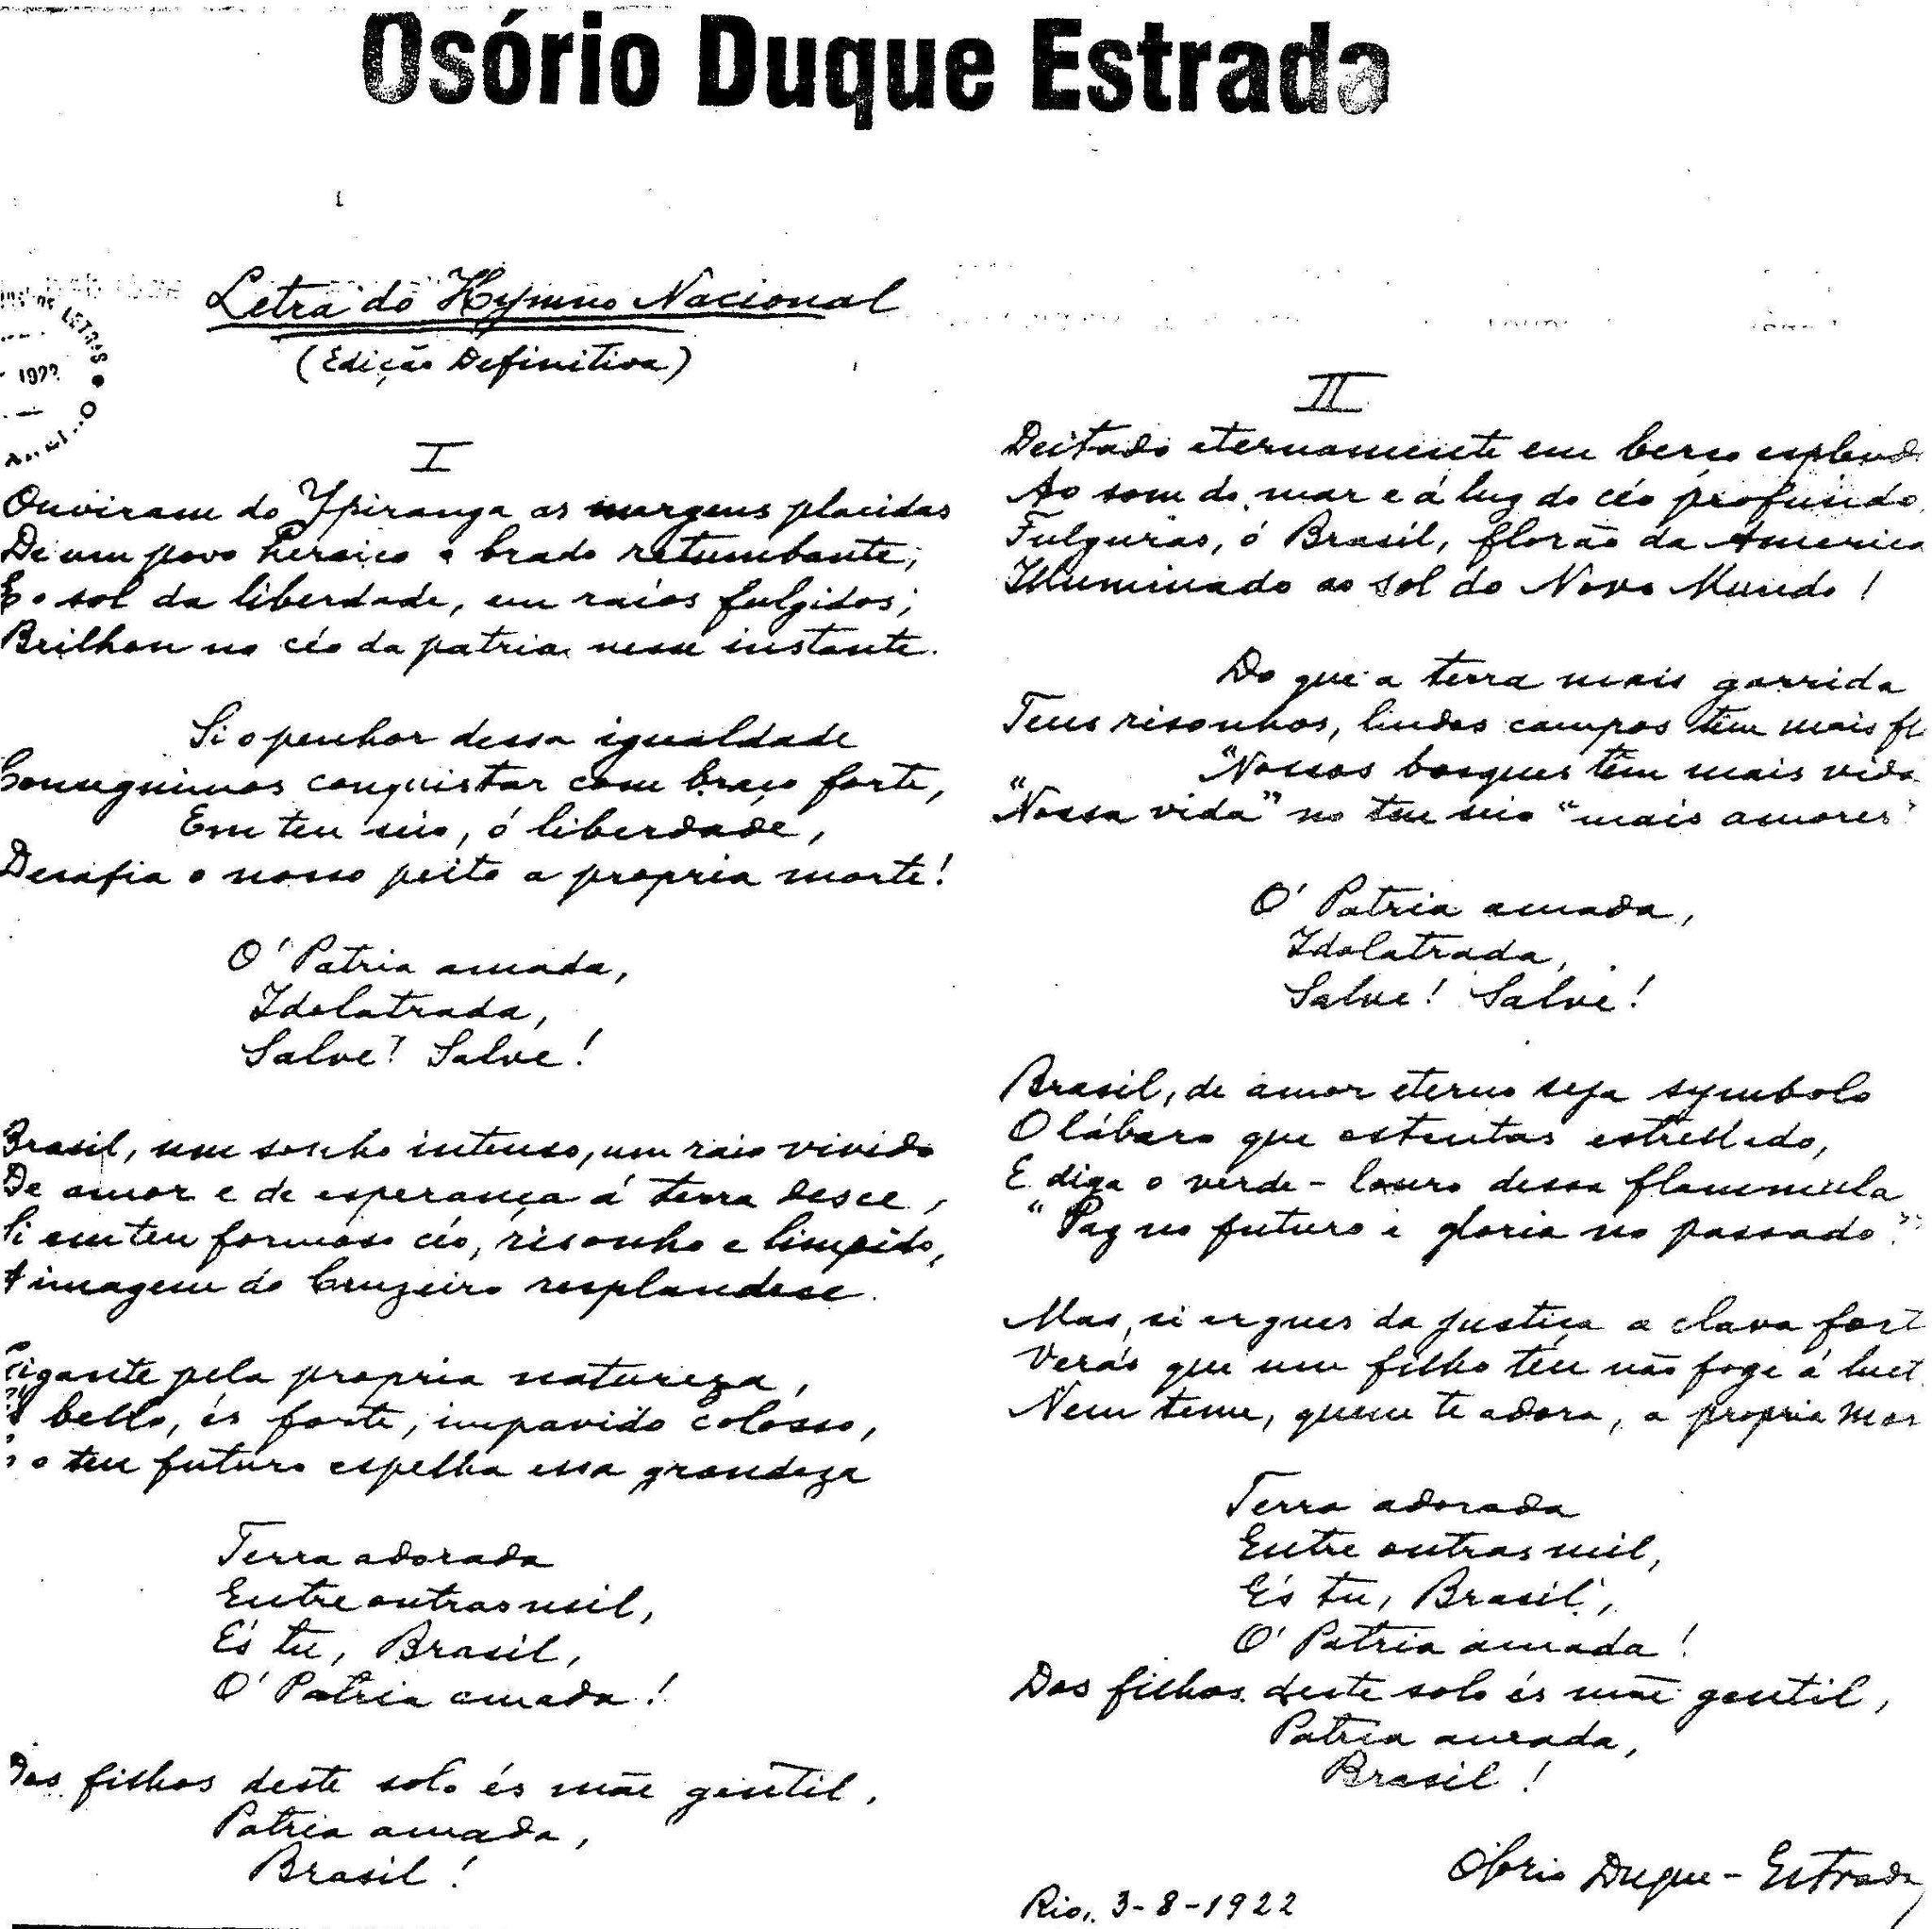 Osório Duque Estrada
Letra do Hymno Nacional
(Edição Definitiva)
LETRAS
I
Ouviram do Ypiranga as margens placidas
De um povo heroico o brado retumbante,
E o sol da liberdade, em raios fulgidos,
Brilhou no céo da patria nesse instante.
Si o penhor dessa igualdade
Conseguimos conquistar com braço forte,
Em teu seio, ó liberdade,
Desafia o nosso peito a propria morte!
O' Patria amada,
Idolatrada,
Salve! Salve!
Brasil, um sonho intenso, um raio vivido
De amor e de esperança á terra desce,
Si em teu formoso céo, risonho e limpido,
A imagem do Cruzeiro resplandece.
Gigante pela propria natureza,
És bello, és forte, impavido colosso,
E o teu futuro espelha essa grandeza
Terra adorada
Entre outras mil,
E's tu, Brasil,
O' Patria amada!
Dos filhos deste solo és mãe gentil,
Patria amada,
Brasil!
II
Deitado eternamente em berço esplend
Ao som do mar e á luz do céo profundo,
Fulguras, ó Brasil, florão da America
Illuminado ao sol do Novo Mundo!
Do que a terra mais garrida
Teus risonhos, lindos campos têm mais fl
"Nossos bosques têm mais vida
"Nossa vida" no teu seio "mais amores"
O' Patria amada,
Idolatrada,
Salve! Salve!
Brasil, de amor eterno seja symbolo
O lábaro que ostentas estrellado,
E diga o verde-louro dessa flammula
"Paz no futuro e gloria no passado."
Mas, si ergues da justiça a clava fort
Verás que um filho teu não foge á luct
Nem teme, quem te adora, a propria mor
Terra adorada
Entre outras mil,
E's tu, Brasil,
O' Patria amada!
Dos filhos deste solo és mãe gentil,
Patria amada,
Brasil!
Osorio Duque-Estrada
Rio, 3-8-1922